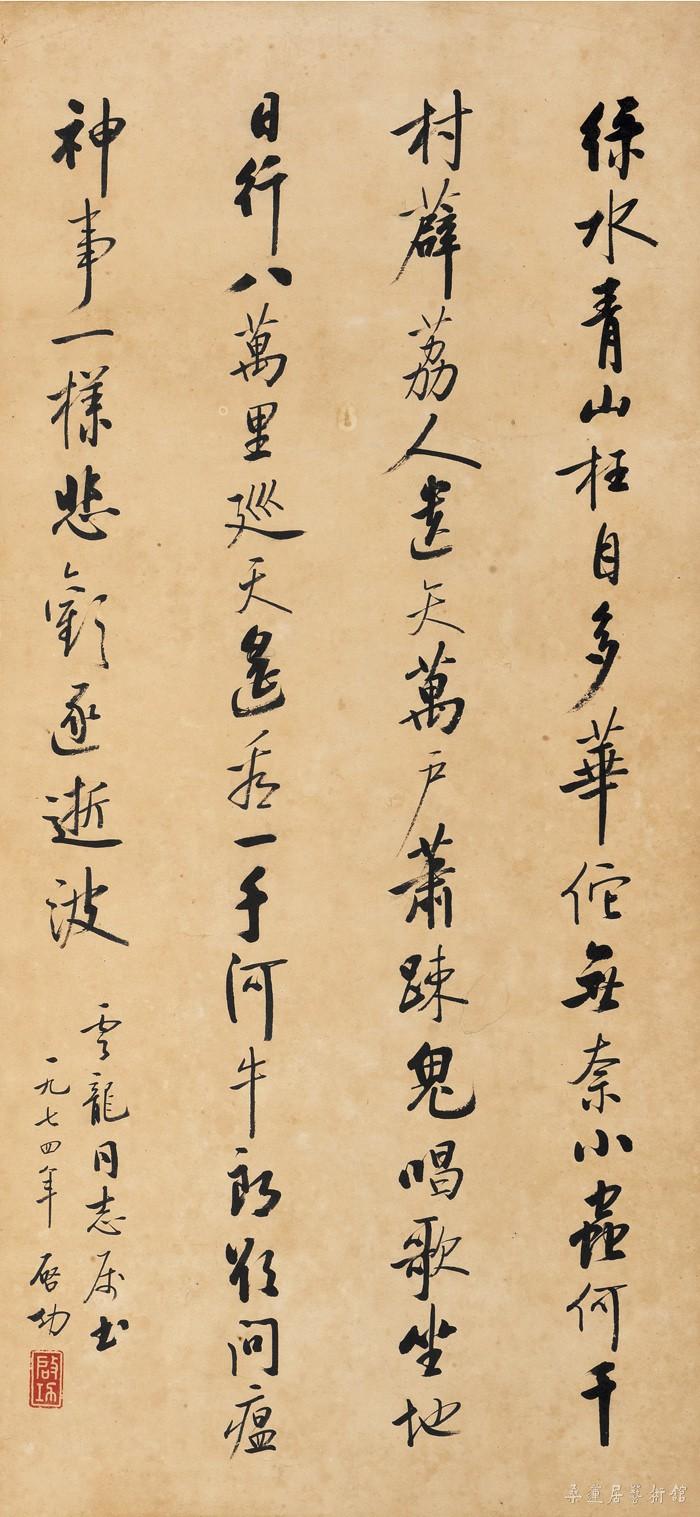 綠水青山枉自多華佗無奈小蟲何千
村薜荔人遺矢萬户蕭踈鬼唱歌坐地
日行八萬里廵天遙看一千河牛郎欲問瘟
神事一樣悲歡逐逝波
雲龍同志属書
一九七四年 啓功
啟功
桑蓮居藝術館